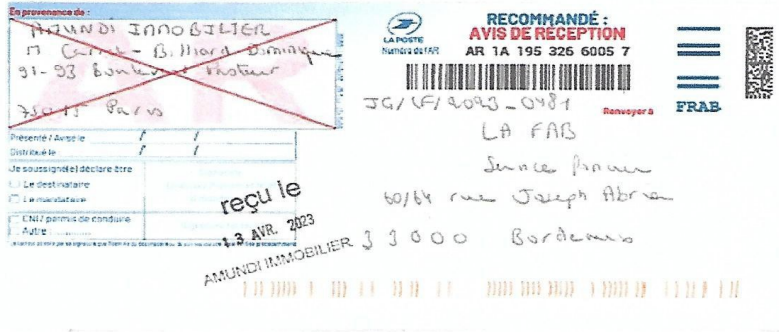 En provenance de :
AMUNDI IMMOBILIER
M Carrel-Billiard Dominique
91-93 Boulevard Pasteur
75015 Paris
Présenté / Avisé le / /
Distribué le : / /
Je soussigné(e) déclare être
Le destinataire
Le mandataire
CNI / permis de conduire
Autre :
LA POSTE
Numéro de l'AR
RECOMMANDÉ :
AVIS DE RÉCEPTION
AR 1A 195 326 6005 7
Renvoyer à
FRAB
JG/LF/2023_0481
LA FAB
60/64 rue Joseph Abria
33000 Bordeaux
reçu le
13 AVR. 2023
AMUNDI IMMOBILIER